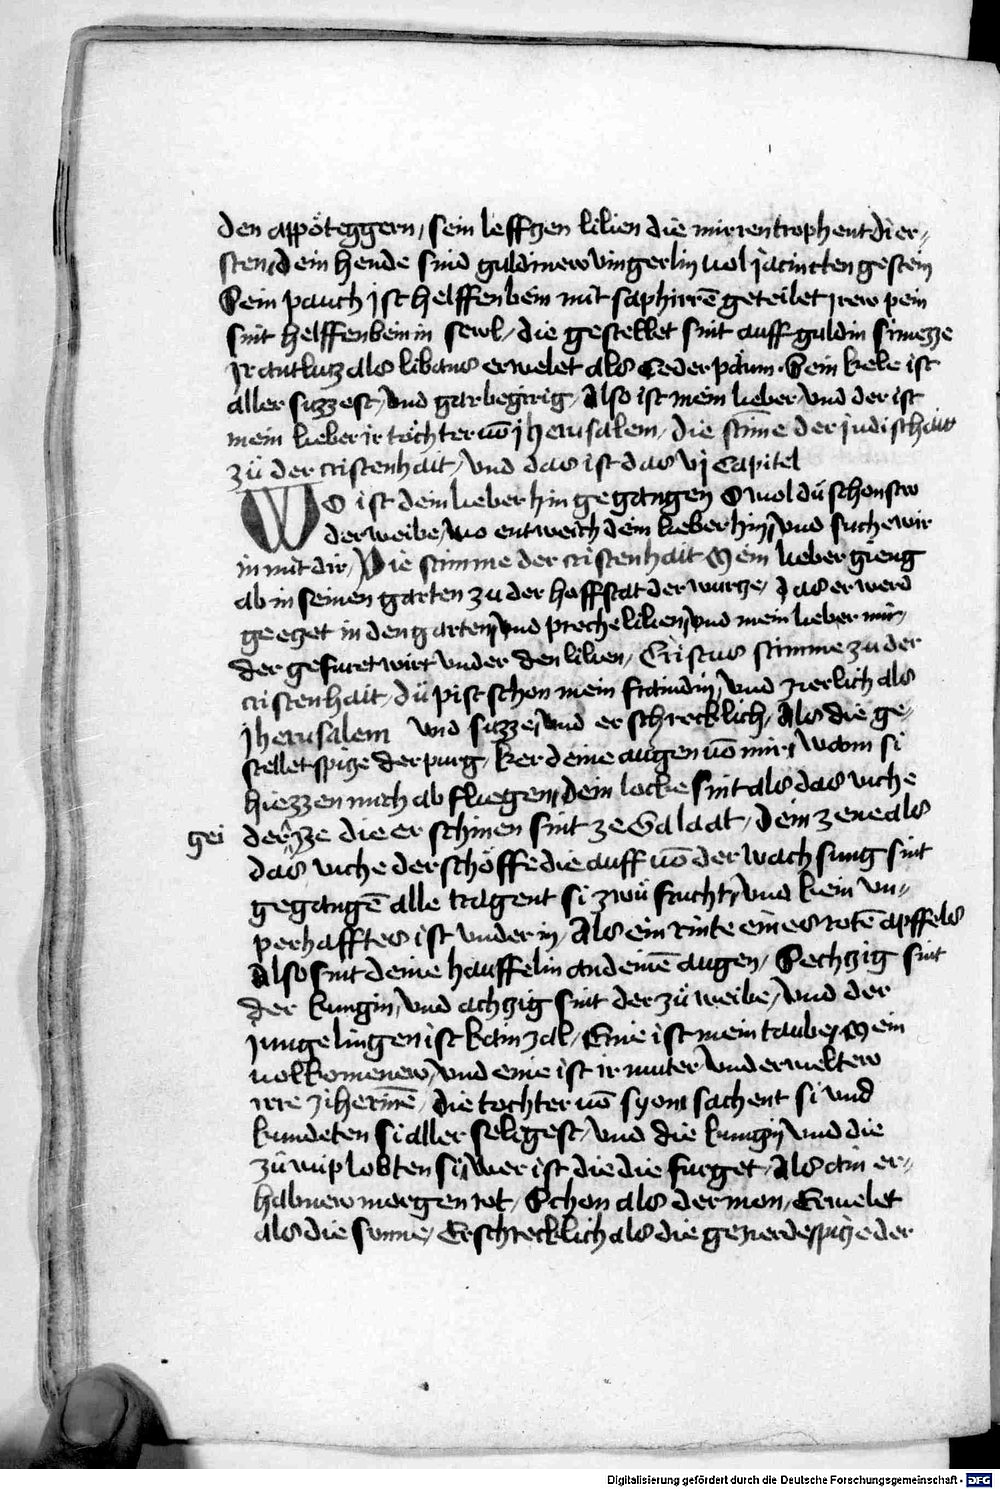 den appöteggern / sein leffczen lilien die mirrentrophent di er-
sten / dein hende sind guldinew vingerlin uol jacincten gestein
Sein pauch jst helffenbein mit saphirrē geteilet jrew pein
sint helffenbeinin sewl / die gestellet sint auff guldin simezze
jr antlutz als libanus erwelet als Ceder päum · Sein kele ist
aller suzzest / vnd gar begirig / Also ist mein lieber / vnd der ist
mein lieber ir töchter uō jherusalem / die stīme der judischait
zü der cristenhait / vnd das ist das vj Capitel
WO ist dein lieber hin gegangen O wol dü schonstw
der weibe / wo entweich dein lieber hin / vnd suche wir
in mit dir / Die stimme der cristenhait Mein lieber gieng
ab in seinen garten zu der hoffstat der wurcze / das er werd
geeczet in den garten / vnd preche lilien / vnd mein lieber mir /
der gefuret wirt vnder den lilien / Cristus stimme zu der
cristenhait / dü pist schon mein fraindin / vnd zierlich als
jherusalem vnd suzze / vnd erschrecklich / Als die ge-
stellet spicze der purg / ker deine augen uō mir / wann si
hiezzen mich ab fliegen / Dein locke sint als das viche
der zze die erschinen sint ze Galaat / Dein zene als
gei
das viche der schöffe die auff uō der wachsung sint
gegangē alle tragent si zwü frucht / vnd kein vn-
perhafftes ist vnder in / Als ein rinte eines rotē apffels
Also sint deine hauffelin an deinē augen / Sechzig sint
der kungin / vnd achzig sint der zü weibe / vnd der
jungelingen ist kain zal / Eine ist mein taube / Mein
uolkomenew / vnd eine ist ir muter / vnd erweltew
die tochter uō syon sachent si vnd
kundeten si aller seligest / vnd die kungin vnd die
zü wip lobten si / Wer ist die die furget / Als ain er-
habnew morgen rot / Schon als der mon / Erwelet
als die sunne / Erschrecklich als die gezierde spicze der
Digitalisierung gefördert durch die Deutsche Forschungsgemeinschaft - DFG